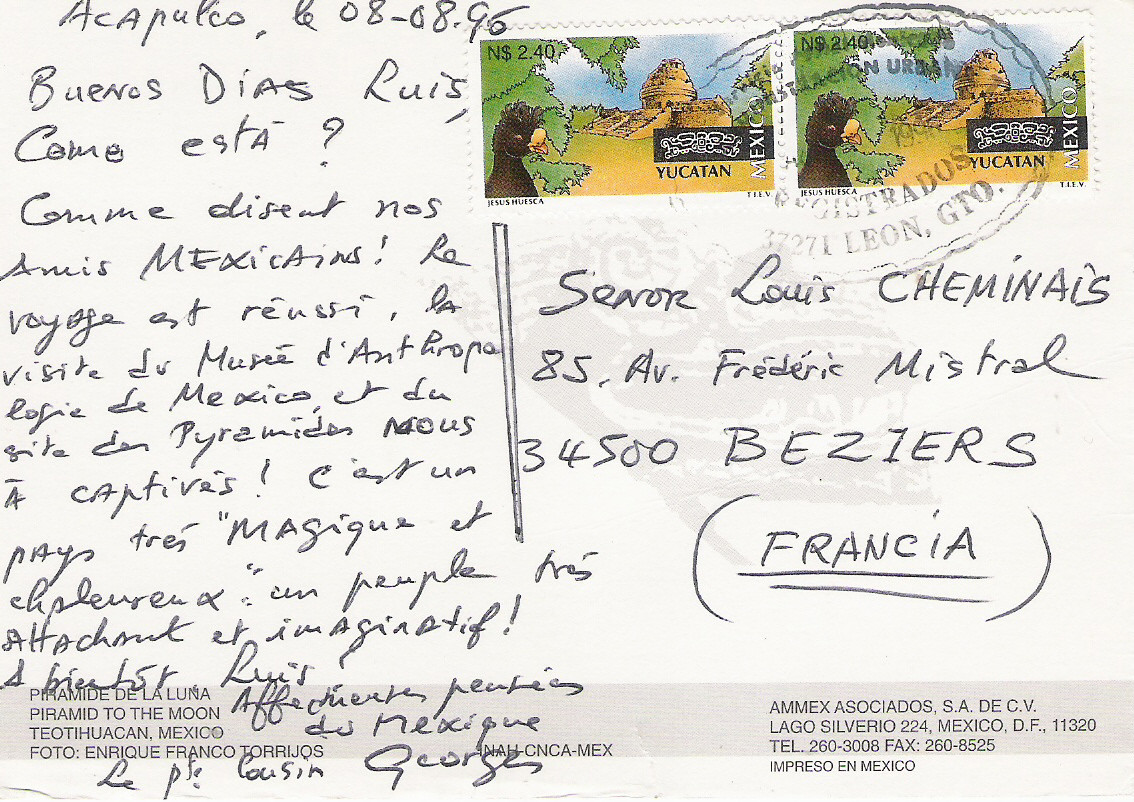 Acapulco, le 08-08.96
Buenos Dias Luis,
Como está ?
Comme disent nos
Amis MEXICAINS ! Le
voyage est réussi, la
visite du Musée d'Anthropo
logie de Mexico, et du
site des Pyramides nous
à captivés ! C'est un
pays très "MAgique et
chaleureux". un peuple très
Attachant et imaginatif !
A bientôt Luis
Affectueuses pensées
du Mexique
Le pte Cousin Georges
N$ 2.40
YUCATAN
MEXICO
JESUS HUESCA
T.I.E.V.
N$ 2.40
YUCATAN
MEXICO
JESUS HUESCA
T.I.E.V.
REGISTRADOS
37271 LEON, GTO.
Senor Louis CHEMINAIS
85, Av. Frédéric Mistral
34500 BEZIERS
(FRANCIA)
PIRAMIDE DE LA LUNA
PIRAMID TO THE MOON
TEOTIHUACAN, MEXICO
FOTO: ENRIQUE FRANCO TORRIJOS
INAH-CNCA-MEX
AMMEX ASOCIADOS, S.A. DE C.V.
LAGO SILVERIO 224, MEXICO, D.F., 11320
TEL. 260-3008 FAX: 260-8525
IMPRESO EN MEXICO